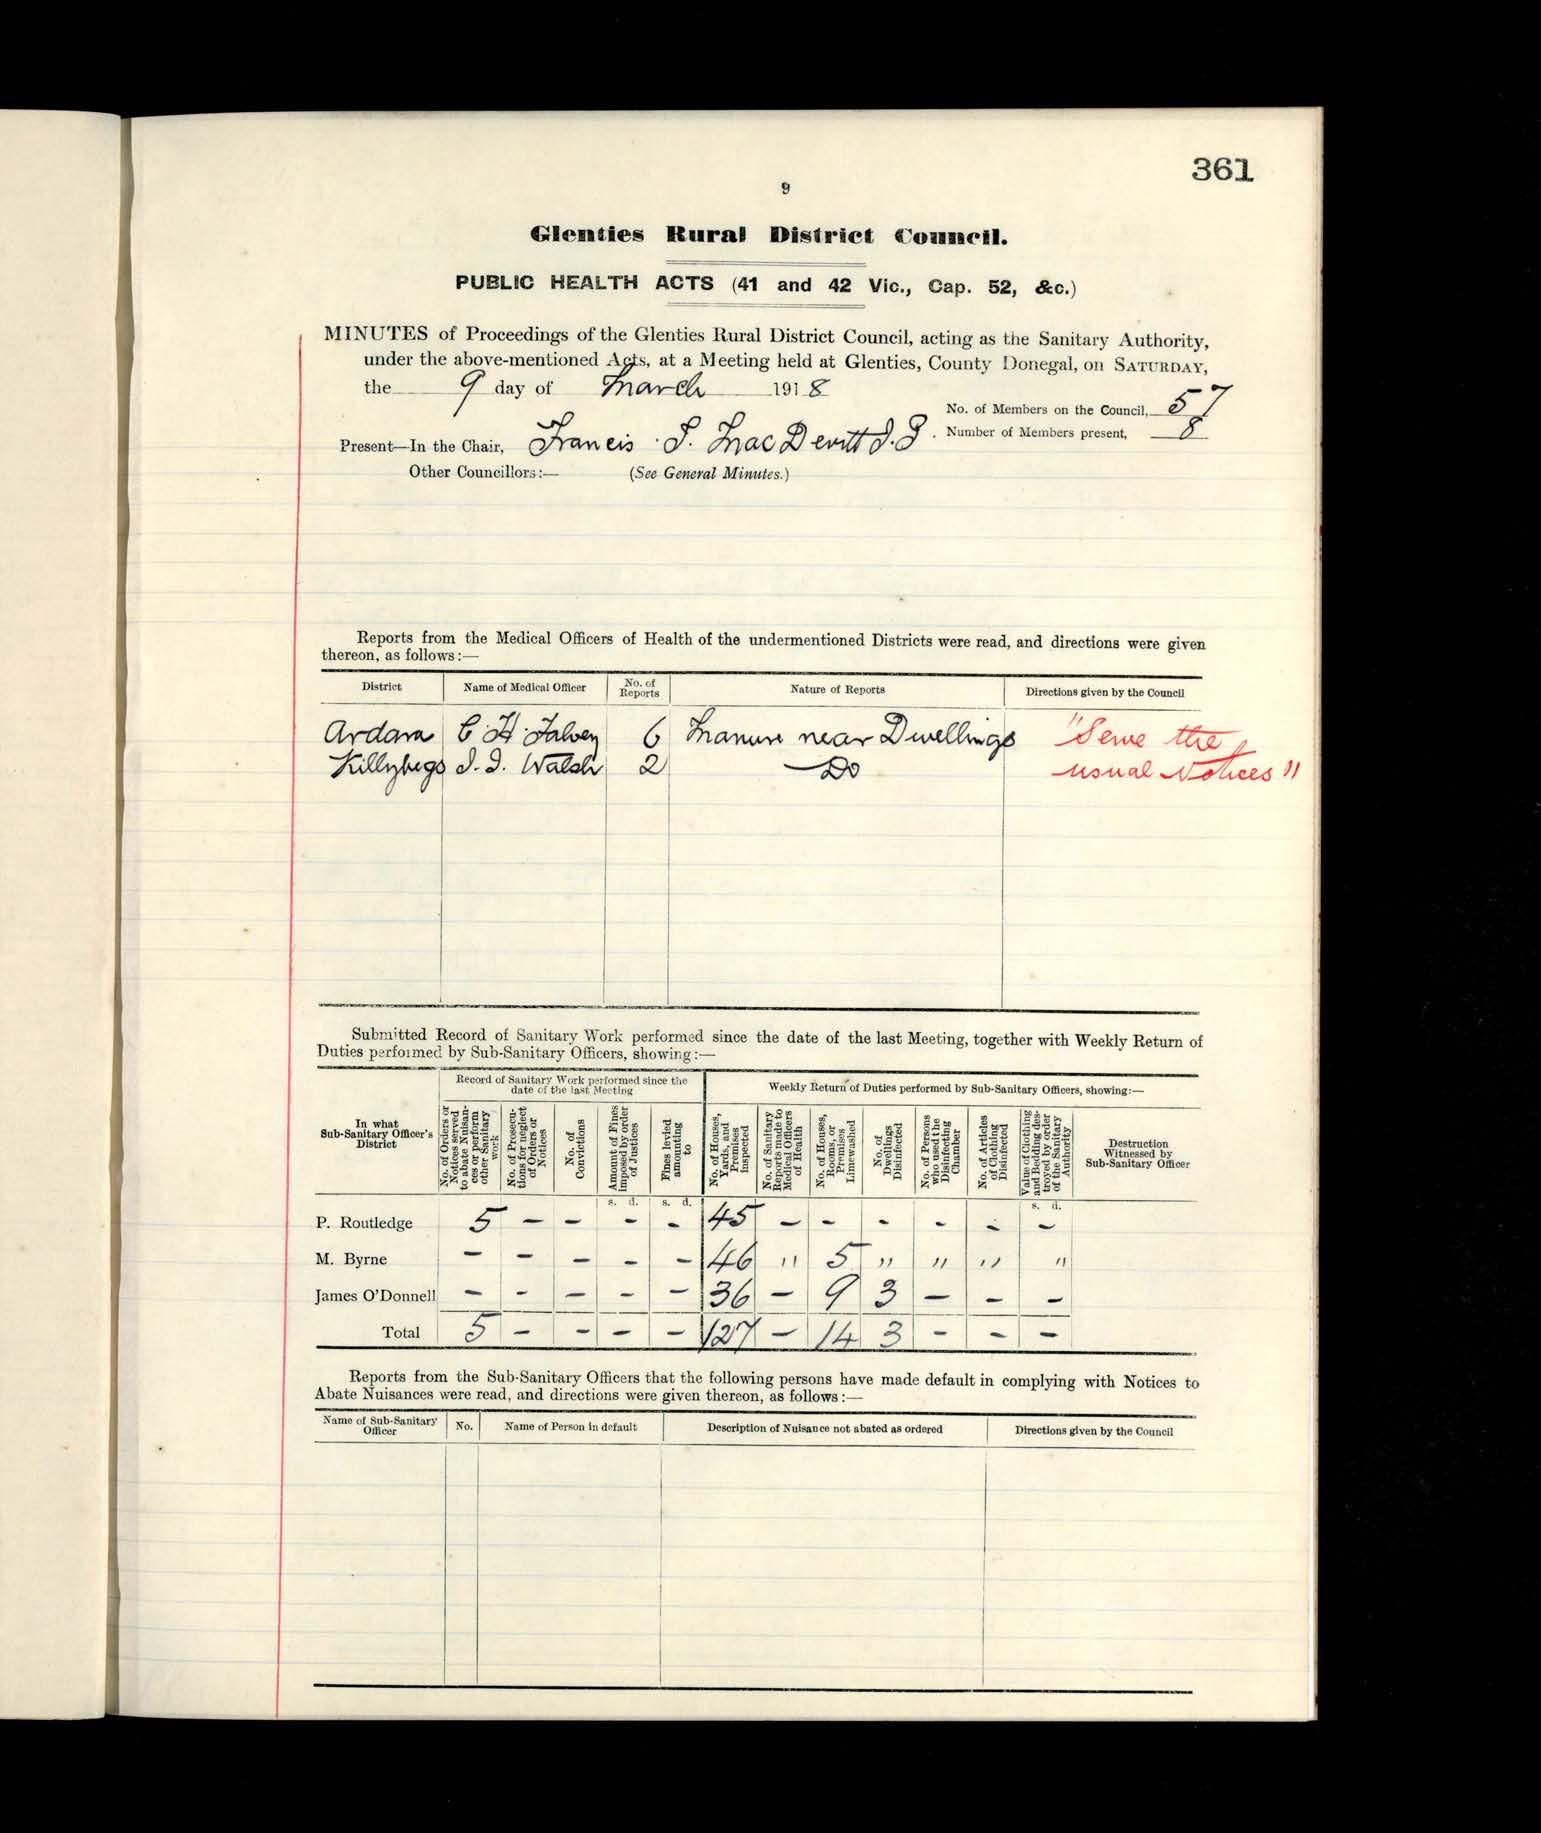 361
9
Glenties Rural District Council.
PUBLIC HEALTH ACTS (41 and 42 Vic., Cap. 52, &c.)
MINUTES of Proceedings of the Glenties Rural District Council, acting as the Sanitary Authority,
under the above-mentioned Acts, at a Meeting held at Glenties, County Donegal, on SATURDAY,
the 9 day of March 1918
No. of Members on the Council, 57
Present—In the Chair, Francis S. MacDevitt J.P. Number of Members present, 8
Other Councillors:— (See General Minutes.)
Reports from the Medical Officers of Health of the undermentioned Districts were read, and directions were given
thereon, as follows:—
District Name of Medical Officer No. of Reports Nature of Reports Directions given by the Council
Ardara C H Falvey 6 Manure near Dwellings "Serve the
Killybegs J. J. Walsh 2 Do usual Notices"
Submitted Record of Sanitary Work performed since the date of the last Meeting, together with Weekly Return of
Duties performed by Sub-Sanitary Officers, showing:—
Record of Sanitary Work performed since the date of the last Meeting Weekly Return of Duties performed by Sub-Sanitary Officers, showing:—
In what Sub-Sanitary Officer's District
No. of Orders or Notices served to abate Nuisances or perform other Sanitary work
No. of Prosecutions for neglect of Orders or Notices
No. of Convictions
Amount of Fines imposed by order of Justices
Fines levied amounting to
No. of Houses, Yards, and Premises Inspected
No. of Sanitary Reports made to Medical Officers of Health
No. of Houses, Rooms, or Premises Limewashed
No. of Dwellings Disinfected
No. of Persons who used the Disinfecting Chamber
No. of Articles of Clothing Disinfected
Value of Clothing and Bedding destroyed by order of the Sanitary Authority
Destruction Witnessed by Sub-Sanitary Officer
s. d. s. d. s. d.
P. Routledge 5 – – – – 45 – – – – – –
M. Byrne – – – – – 46 " 5 " " " "
James O'Donnell – – – – – 36 – 9 3 – – –
Total 5 – – – – 127 – 14 3 – – –
Reports from the Sub-Sanitary Officers that the following persons have made default in complying with Notices to
Abate Nuisances were read, and directions were given thereon, as follows:—
Name of Sub-Sanitary Officer No. Name of Person in default Description of Nuisance not abated as ordered Directions given by the Council